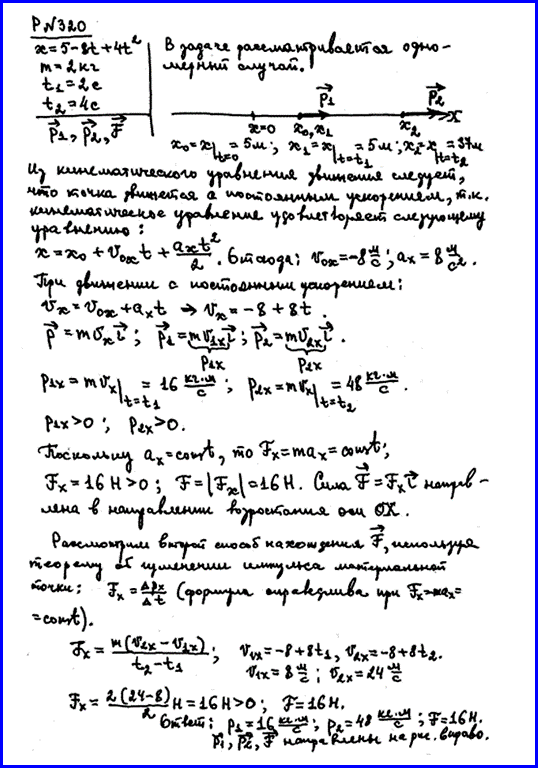 Р№320
x = 5 - 8t + 4t²
m = 2 кг
t₁ = 2 с
t₂ = 4 с
p⃗₁, p⃗₂, F⃗
В задаче рассматривается одно-
мерный случай.
p⃗₁ p⃗₂
x=0 x₀, x₁ x₂ x
x₀ = x|t=0 = 5м; x₁ = x|t=t₁ = 5м; x₂ = x|t=t₂ = 37м
Из кинематического уравнения движения следует,
что точка движется с постоянным ускорением, т.к.
кинематическое уравнение удовлетворяет следующему
уравнению:
x = x₀ + v₀ₓt + aₓt²/2. Отсюда: v₀ₓ = -8 м/с; aₓ = 8 м/с².
При движении с постоянным ускорением:
vₓ = v₀ₓ + aₓt → vₓ = -8 + 8t.
p⃗ = mvₓi⃗; p⃗₁ = mv₁ₓi⃗; p⃗₂ = mv₂ₓi⃗.
p₁ₓ p₂ₓ
p₁ₓ = mvₓ|t=t₁ = 16 кг·м/с; p₂ₓ = mvₓ|t=t₂ = 48 кг·м/с.
p₁ₓ > 0; p₂ₓ > 0.
Поскольку aₓ = const, то Fₓ = maₓ = const;
Fₓ = 16 Н > 0; F = |Fₓ| = 16 Н. Сила F⃗ = Fₓi⃗ направ-
лена в направлении возрастания оси OX.
Рассмотрим второй способ нахождения F⃗, используя
теорему об изменении импульса материальной
точки: Fₓ = Δpₓ/Δt (формула справедлива при Fₓ = maₓ =
= const).
Fₓ = m(v₂ₓ - v₁ₓ)/(t₂ - t₁); v₁ₓ = -8 + 8t₁, v₂ₓ = -8 + 8t₂.
v₁ₓ = 8 м/с; v₂ₓ = 24 м/с
Fₓ = 2(24-8)/2 Н = 16 Н > 0; F = 16 Н.
Ответ: p₁ = 16 кг·м/с; p₂ = 48 кг·м/с; F = 16 Н.
p⃗₁, p⃗₂, F⃗ направлены на рис. вправо.